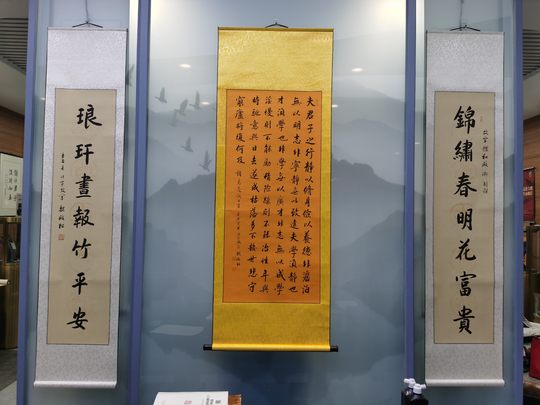 錦繡春明花富貴
夫君子之行靜以修身儉以養德非澹泊
無以明志非寧靜無以致遠夫學須靜也
才須學也非學無以廣才非志無以成學
淫慢則不能勵精險躁則不能治性年與
時馳意與日去遂成枯落多不接世悲守
窮廬將復何及
琅玕畫報竹平安